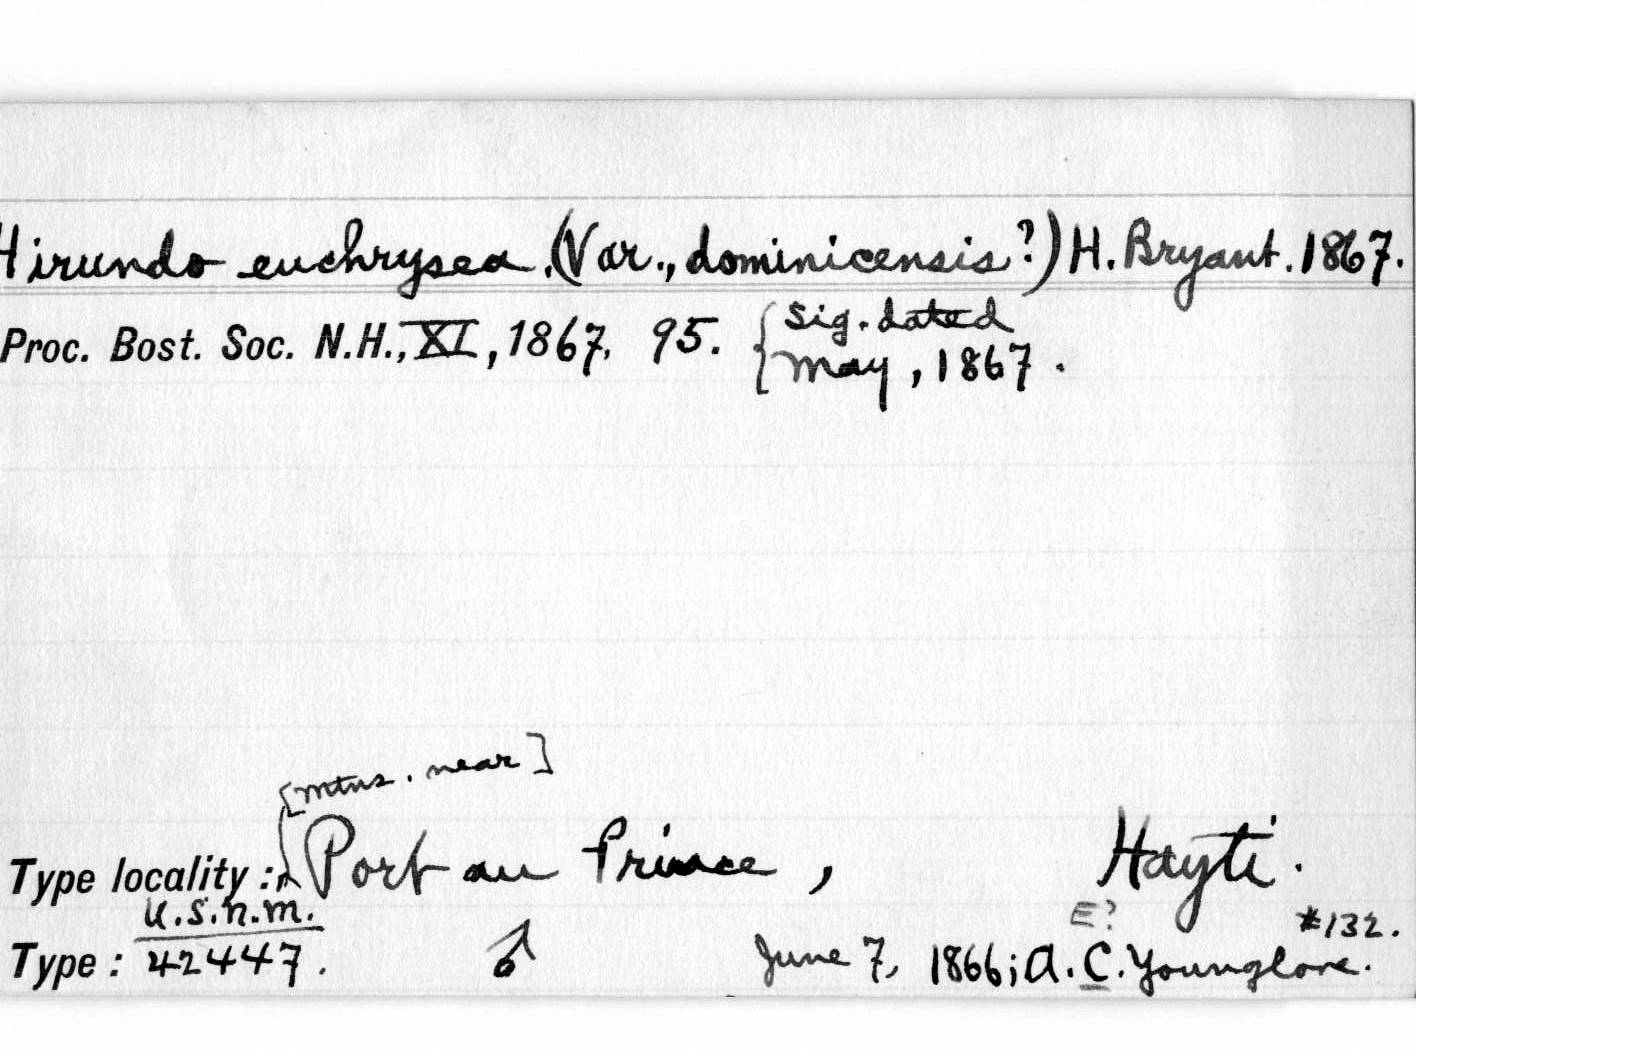 Hirundo euchrysea. (Var., dominicensis?) H. Bryant. 1867.
Proc. Bost. Soc. N.H., XI, 1867, 95. { Sig. dated
May, 1867.
[Mtns. near]
Type locality: Port au Prince, Hayti.
U.S.N.M. E? #132.
Type: 42447. ♂ June 7, 1866; A. C. Younglove.